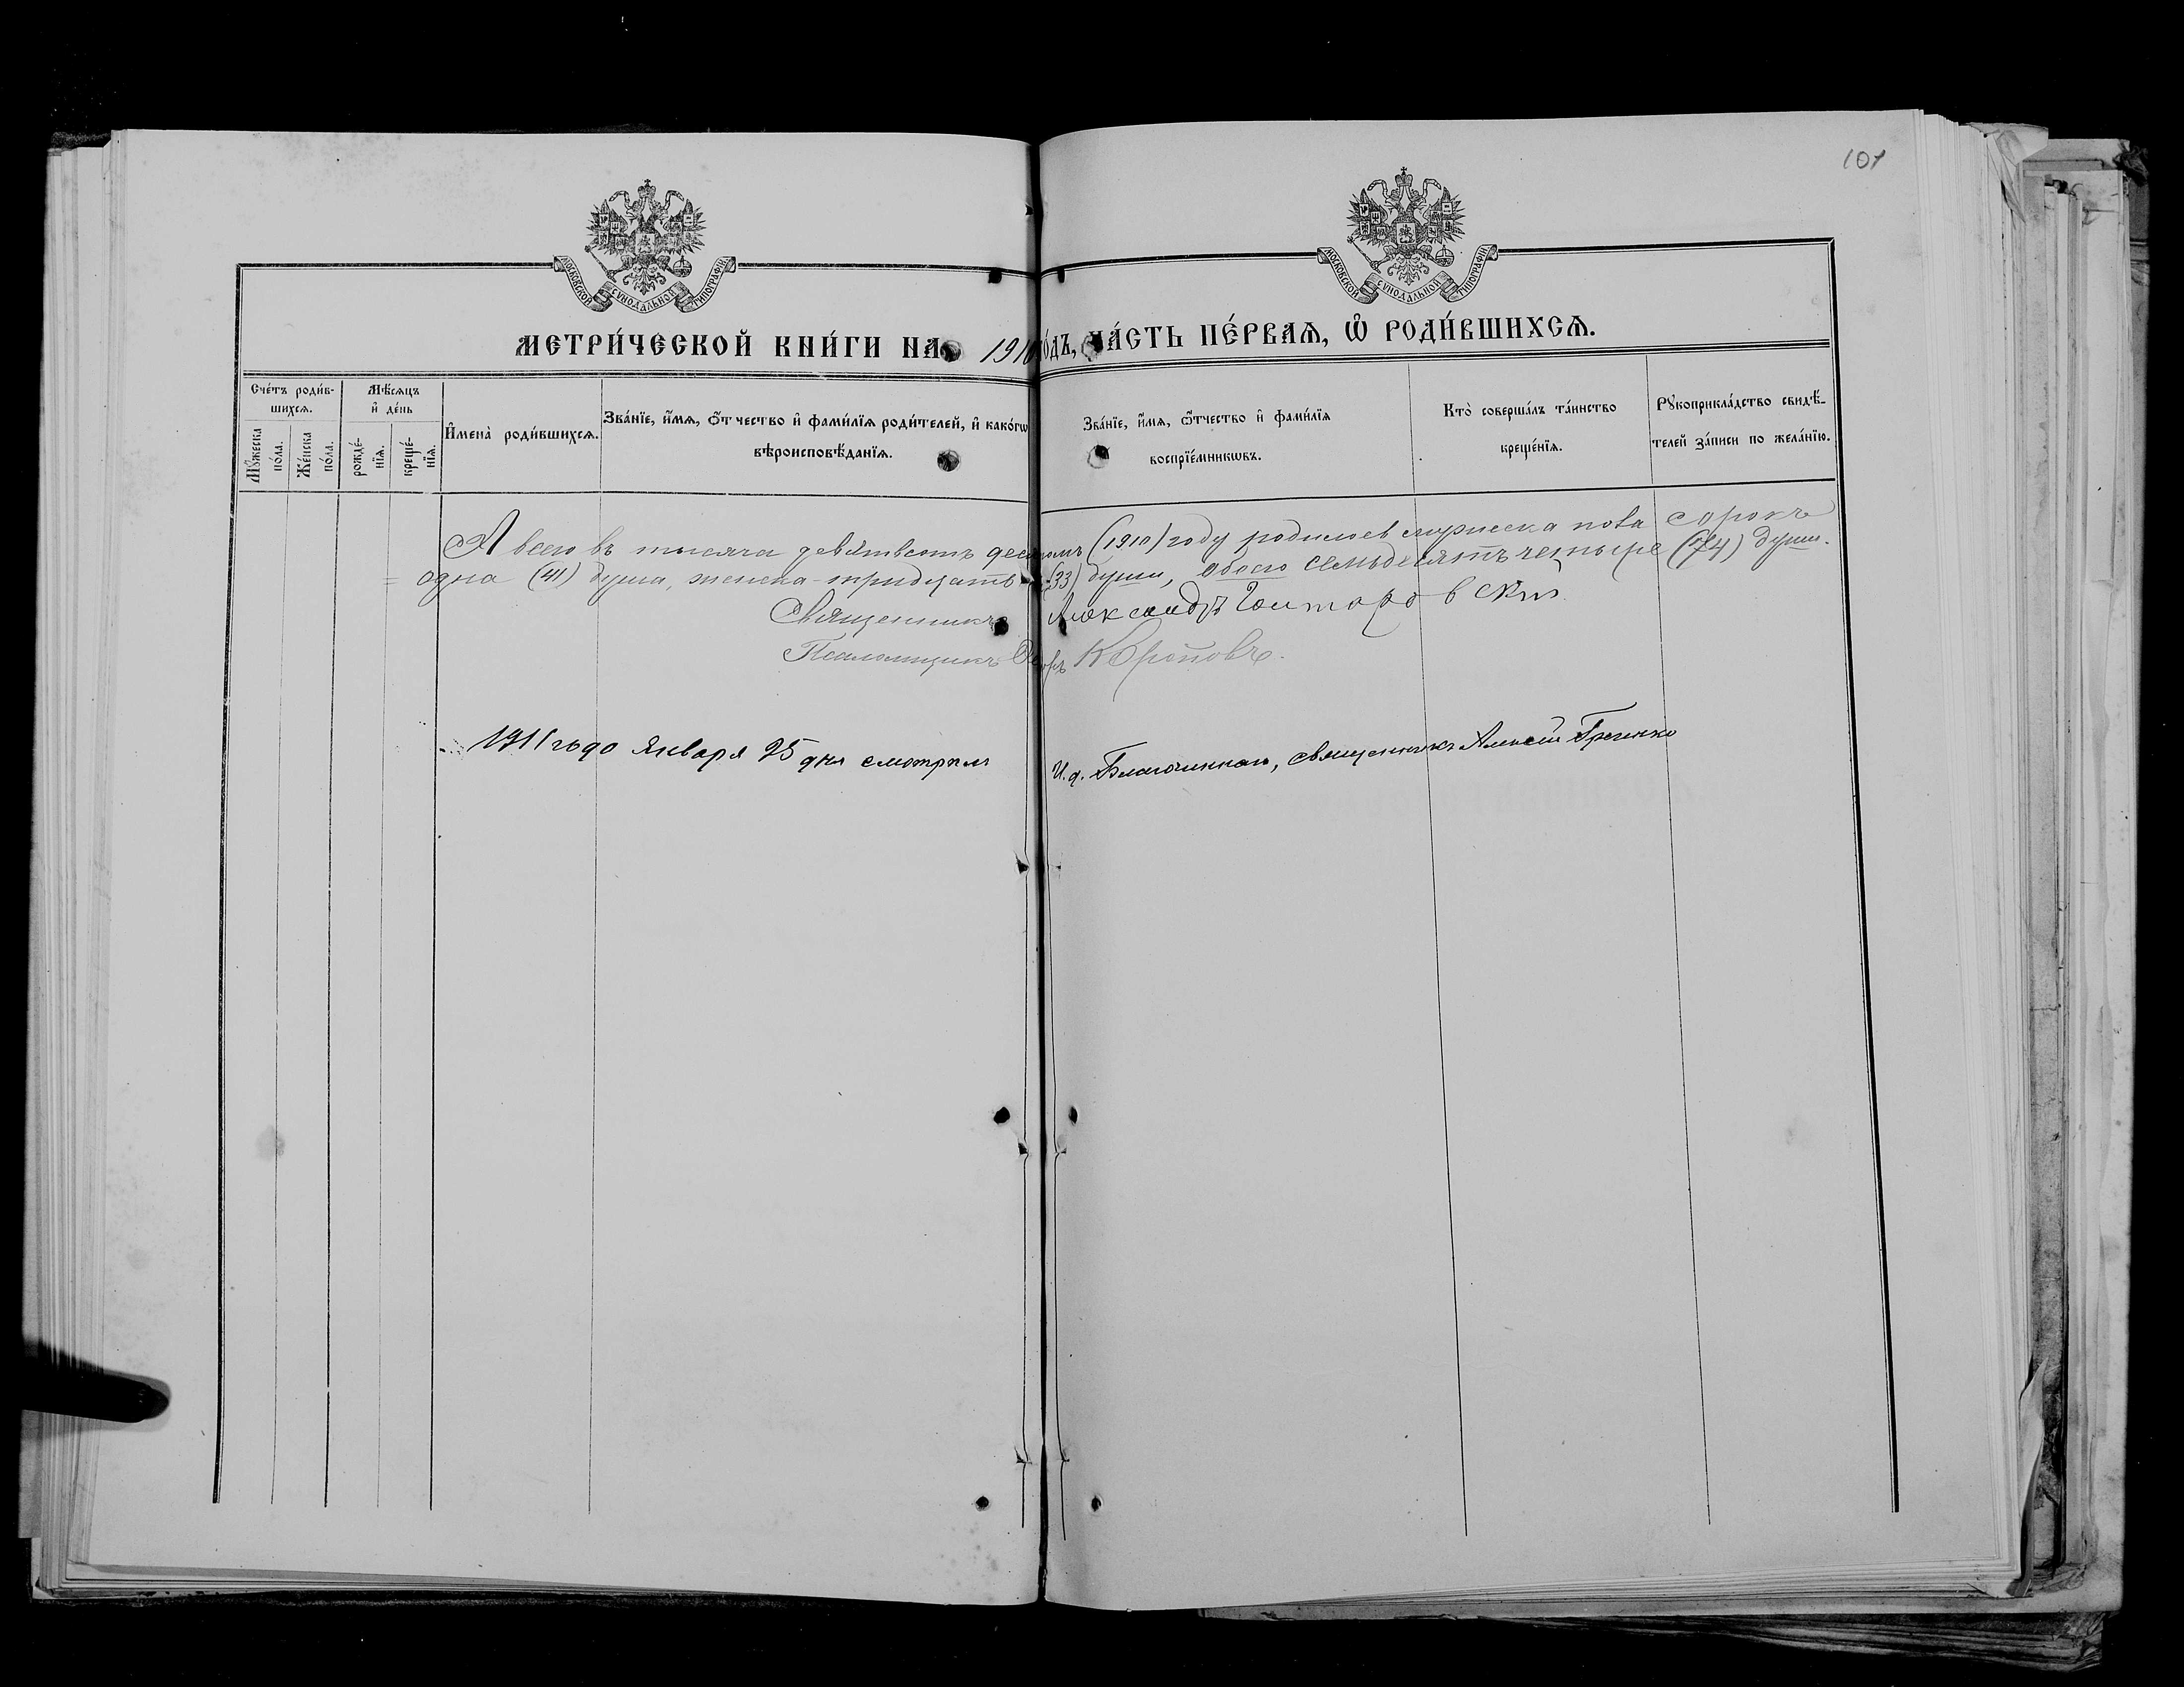 101
МОСКОВСКОЙ СѴНОДАЛЬНОЙ ТИПОГРАФІИ
МОСКОВСКОЙ СѴНОДАЛЬНОЙ ТИПОГРАФІИ
МЕТРИ́ЧЕСКОЙ КНИ́ГИ НА 1910 ГО́ДЪ, ЧА́СТЬ ПЕ́РВАѦ, Ѡ҆ РОДИ́ВШИХСѦ.
Счётъ роди́в-
шихсѧ.
Мꙋ́жеска по́ла.
Же́нска по́ла.
Мѣ́сѧцъ
и҆ де́нь
рожде́-
нїѧ.
креще́-
нїѧ.
И҆мена̀ роди́вшихсѧ.
Зва́нїе, и҆́мѧ, ѻ҆́тчество и҆ фами́лїѧ роди́телей, и҆ како́гѡ
вѣроисповѣ́данїѧ.
Зва́нїе, и҆́мѧ, ѻ҆́тчество и҆ фами́лїѧ
воспрїе́мникѡвъ.
Кто̀ соверша́лъ та́инство
креще́нїѧ.
Рꙋкоприкла́дство свидѣ́-
телей за́писи по жела́нїю.
А всего въ тысяча девятьсотъ десятомъ (1910) году родилось мужеска пола сорокъ
одна (41) душа, женска тридцать (33) души, обоего семьдесятъ четыре (74) души.
Священникъ Александръ
Псаломщикъ
1911 года Января 25 дня смотрѣлъ И. д. Благочиннаго, священникъ Алексій